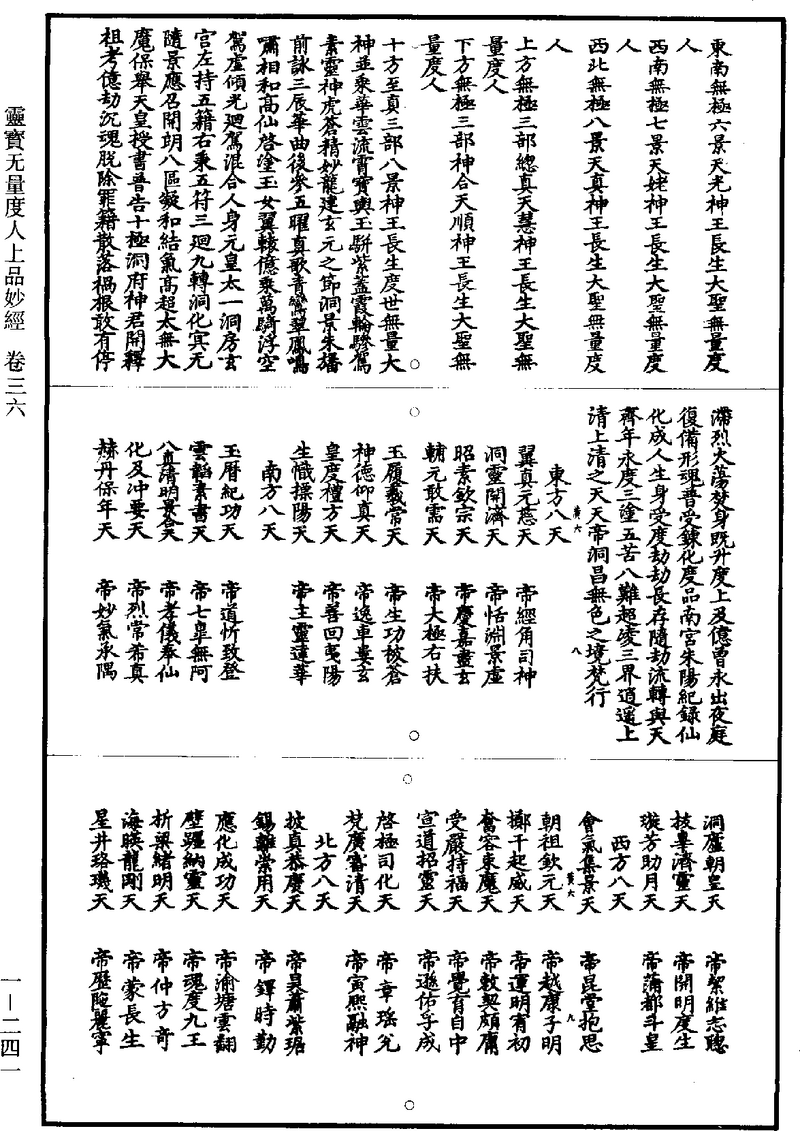 東南無極六景天光神王長生大聖無量度
人
西南無極七景天姥神王長生大聖無量度
人
西北無極八景天真神王長生大聖無量度
人
上方無極三部總真天慧神王長生大聖無
量度人
下方無極三部神合天順神王長生大聖無
量度人
十方至真三部八景神王長生度世無量大
神並乘華雲流霄寶輿玉騈紫蓋霞輪驂駕
素靈神虎蒼精妙龍建玄元之節洞景朱旛
前詠三辰華曲後參五曜真歌青鸞翠鳳鳴
嘯相和高仙啓塗玉女翼轅億乘萬騎浮空
駕虛傾光迴駕混合人身元皇太一洞房玄
宮左持五籍右乘五符三迴九轉洞化冥无
隨景應召開朗八區凝和結氣高超太無大
魔保舉天皇授書普告十極洞府神君開釋
祖考億劫沉魂脫除罪籍散落禍根敢有停
滯烈火蕩焚身既升度上及億曾永出夜庭
復備形魂普受鍊化度品南宮朱陽紀錄仙
化成人生身受度劫劫長存隨劫流轉與天
齊年永度三塗五苦八難超凌三界逍遥上
清上清之天天帝洞昌無色之境梵行
東方八天
翼真元慈天 帝經角司神
洞靈開濟天 帝恬淵景虛
昭素欽宗天 帝慶嘉晝玄
輔元敢需天 帝大極右扶
玉履載常天 帝生功被蒼
神德仰真天 帝逸車婁玄
皇度檀方天 帝善回夷陽
生幟操陽天 帝主靈違華
南方八天
玉曆紀功天 帝道忻致登
雲韜素書天 帝七皐無阿
八真清明景合天 帝孝儀奉仙
化及冲要天 帝烈常希真
赫丹保年天 帝妙氣承隅
洞廬朝皇天 帝絜維志聰
技畢濟靈天 帝開明度生
璇芳助月天 帝蒲都斗皇
西方八天
會氣集景天 帝昆堂抱思
朝祖欽元天 帝越康子明
擲千起威天 帝運明宥初
奮容束魔天 帝敕契頗庸
受嚴持福天 帝覺育自中
宣道招靈天 帝遜佑孚成
啓極司化天 帝章瑤兊
梵廣審清天 帝寅熙融神
北方八天
披真恭慶天 帝昊蕭紫琚
錫離崇用天 帝鐸時勤
應化成功天 帝渝塘雲翻
壁躔納靈天 帝魂度九王
折梁緒明天 帝仲方奇
海暎龍剛天 帝蒙長生
星井珞璣天 帝歷陵麗寧
靈寶无量度人上品妙經 卷三六
一—二四一